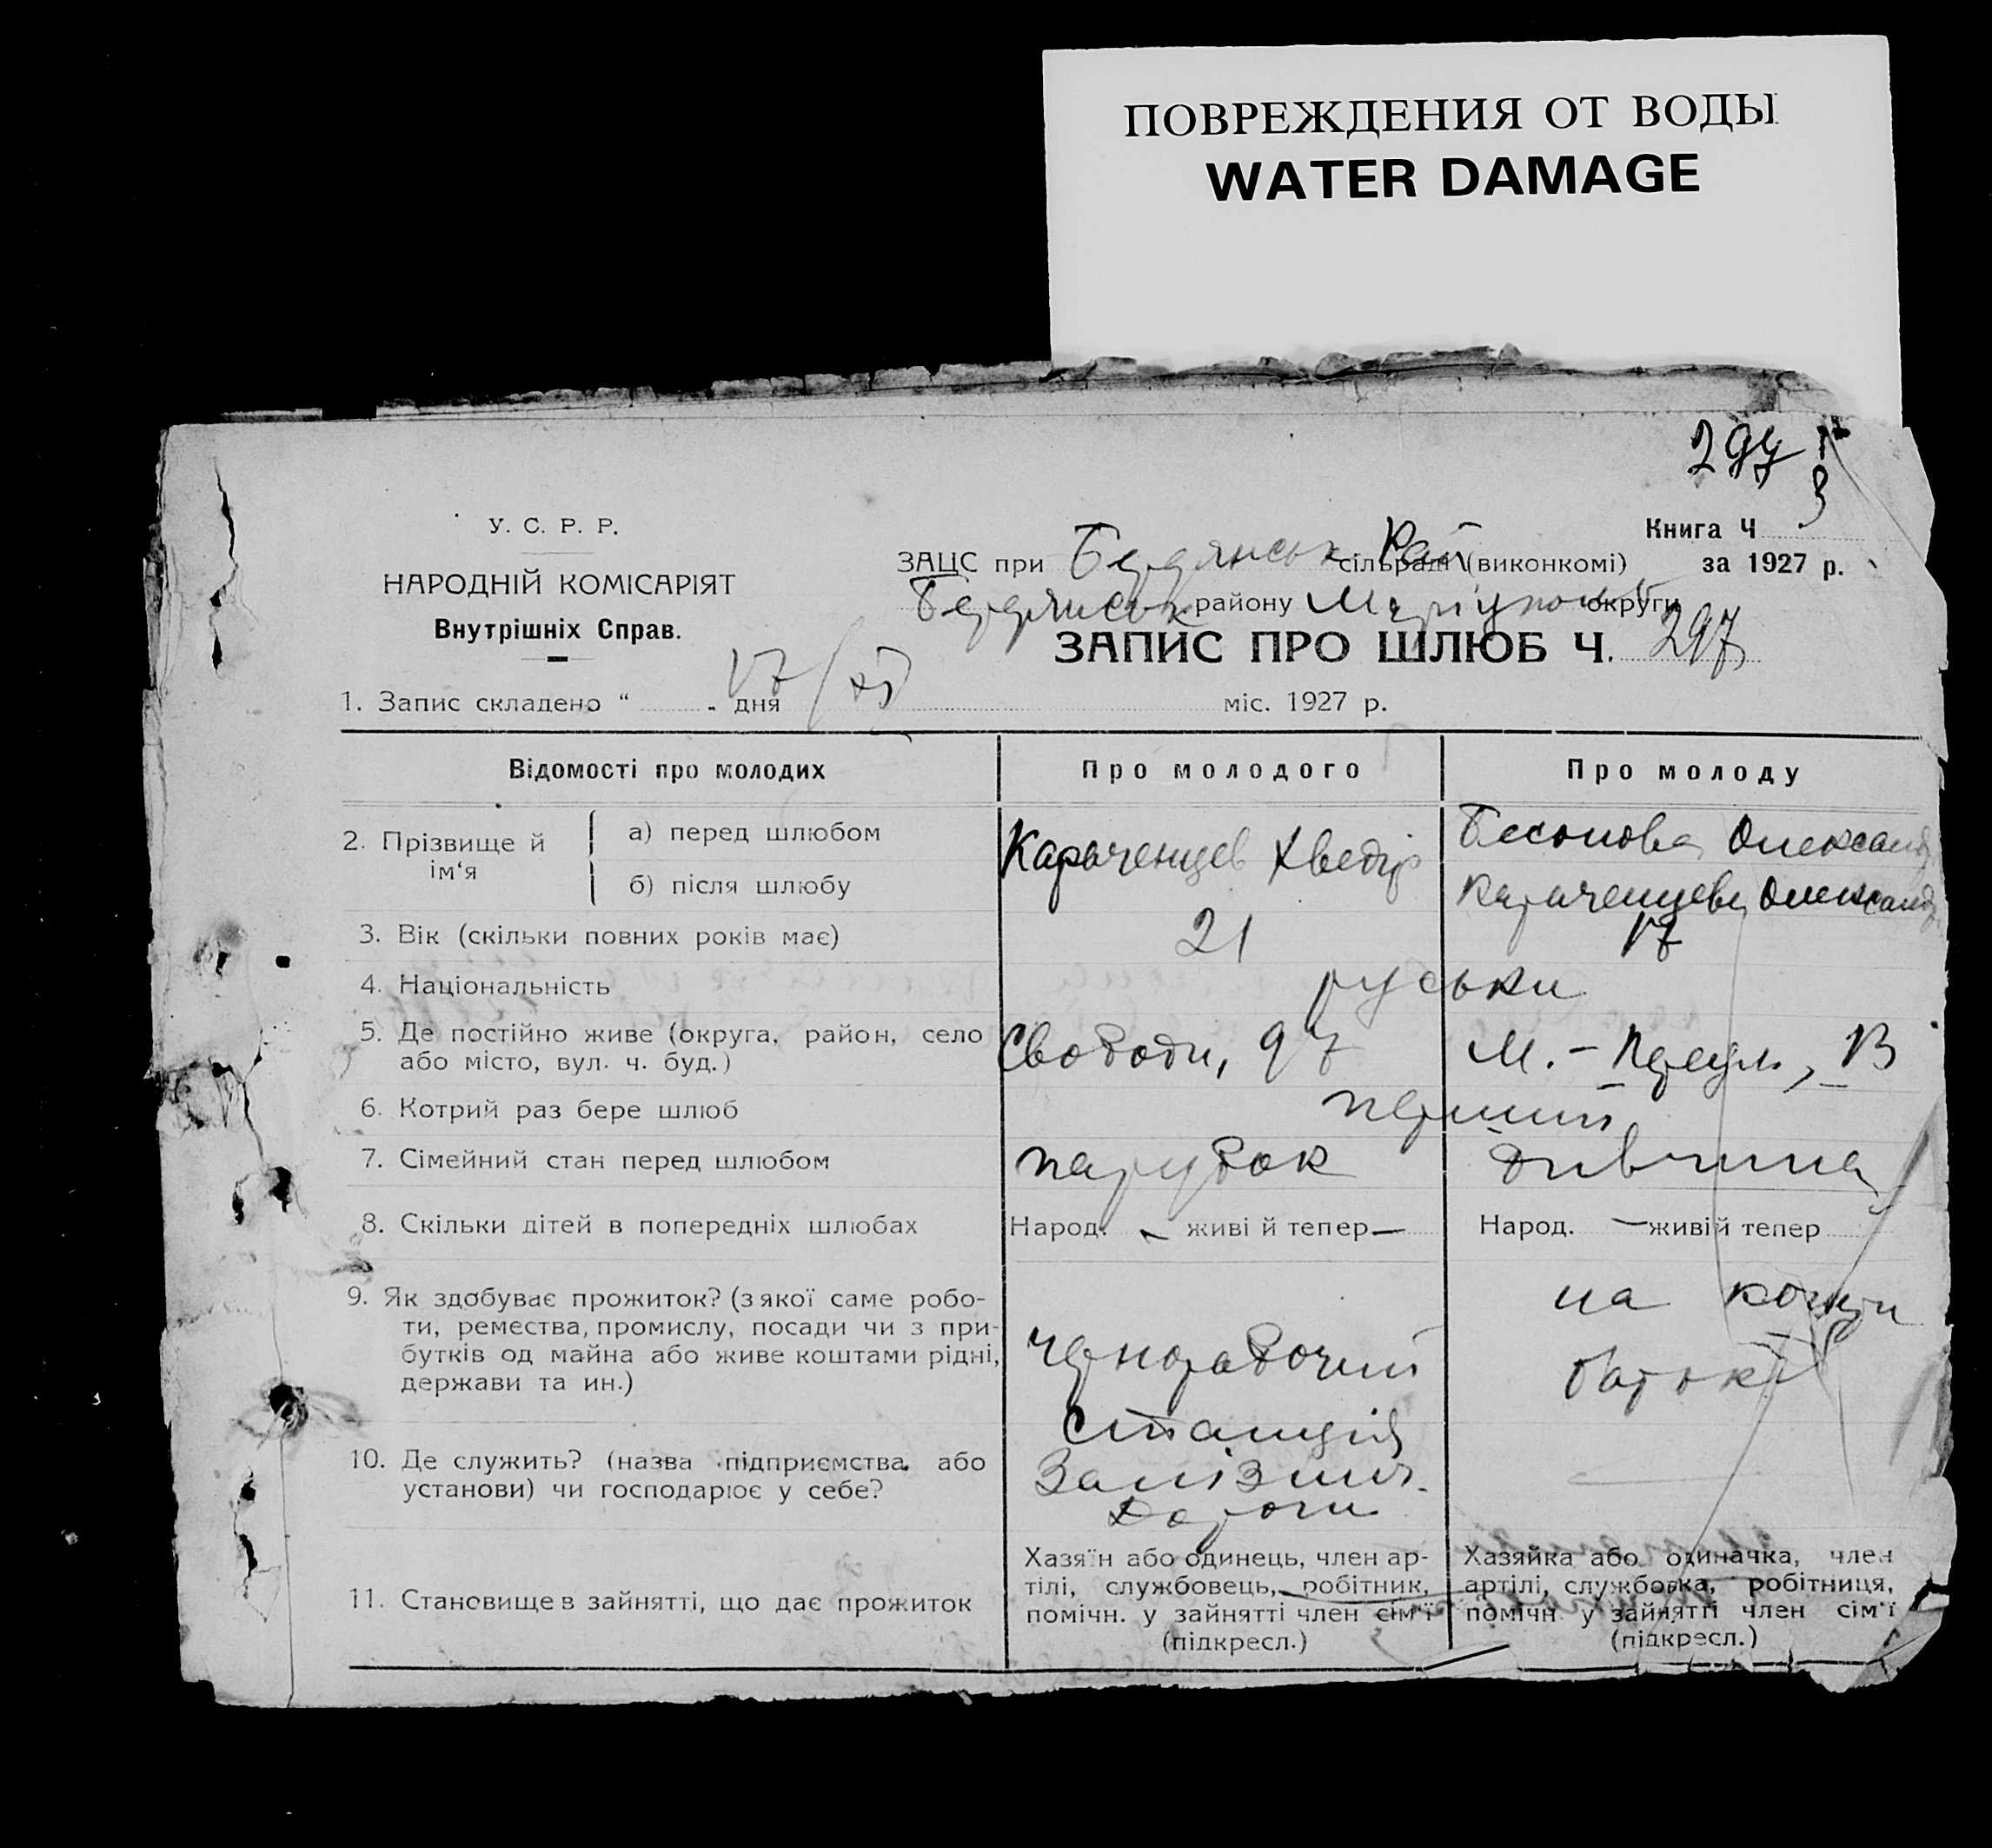 ПОВРЕЖДЕНИЯ ОТ ВОДЫ
WATER DAMAGE
297
3
У. С. Р. Р.
НАРОДНІЙ КОМІСАРІЯТ
Внутрішніх Справ.
Книга Ч
за 1927 р.
ЗАЦС при Бердянськ Рай сільраді (виконкомі)
Бердянськ району Маріупольськ округи
ЗАПИС ПРО ШЛЮБ Ч. 297
1. Запис складено “ 17/XI дня міс. 1927 р.
Відомості про молодих Про молодого Про молоду
2. Прізвище й ім‘я
а) перед шлюбом Караченцев Хведір Бесонова Олександ
б) після шлюбу Караченцева Олександ
3. Вік (скільки повних років має) 21 17
4. Національність руськи
5. Де постійно живе (округа, район, село
або місто, вул. ч. буд.) Свободи, 97 М.-
6. Котрий раз бере шлюб перший
7. Сімейний стан перед шлюбом парубок дивчина
8. Скільки дітей в попередніх шлюбах Народ. — живі й тепер — Народ. — живі й тепер
9. Як здобуває прожиток? (з якої саме робо-
ти, ремества, промислу, посади чи з при-
бутків од майна або живе коштами рідні,
держави та ин.)
чернорабочий
на кошти
батькі
10. Де служить? (назва підприємства або
установи) чи господарює у себе?
Станція
Залізнич.
Дороги
11. Становище в зайнятті, що дає прожиток
Хазяїн або одинець, член ар-
тілі, службовець, робітник,
помічн. у зайнятті член сім‘ї
(підкресл.)
Хазяйка або одиначка, член
артілі, службовка, робітниця,
помічн. у зайнятті член сім‘ї
(підкресл.)